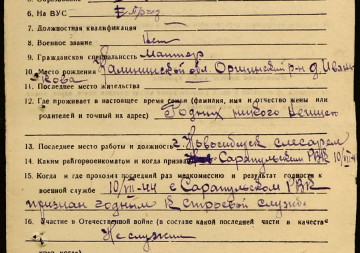 6. На ВУС
7. Должностная квалификация
8. Военное звание
9. Гражданская специальность
10. Место рождения Калининской обл. Оршинский р-н д. Ивань
кова
11. Последнее место жительства
12. Где проживает в настоящее время семья (фамилия, имя и отчество жены или
родителей и точный их адрес) Родных никого
г. Новосибирск слесарем
13. Последнее место работы и должность
14. Каким райгорвоенкоматом и когда призван Сарапульским РВК 10/VII-44
15. Когда и где проходил последний раз медкомиссию и результат годности к
военной службе 10/VII-44 в Сарапульском РВК
признан годным к строевой службе
16. Участие в Отечественной войне (в составе какой последней части и качестве
Не служил